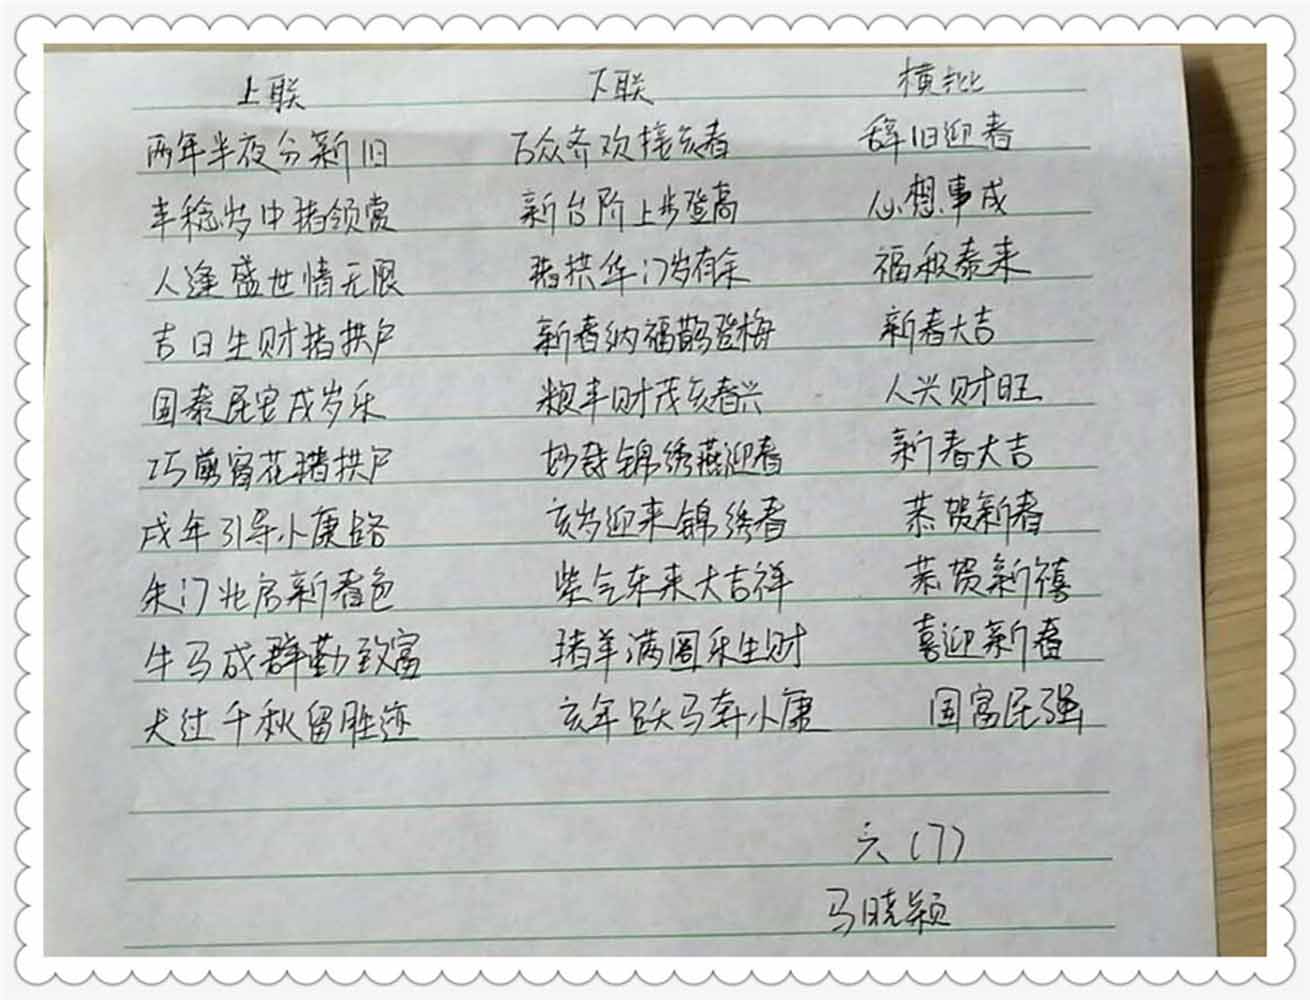 上联 下联 横批
两年半夜分新旧 万众齐欢接亥春 辞旧迎春
丰稔岁中猪领赏 新台阶上步登高 心想事成
人逢盛世情无限 猪拱华门岁有余 福积泰来
吉日生财猪拱户 新春纳福鹊登梅 新春大吉
国泰民安戌岁乐 粮丰财茂亥春兴 人兴财旺
巧剪窗花猪拱户 妙裁锦绣燕迎春 新春大吉
戌年引导小康路 亥岁迎来锦绣春 恭贺新春
朱门北启新春色 紫气东来大吉祥 恭贺新禧
牛马成群勤致富 猪羊满圈乐生财 喜迎新春
犬过千秋留胜迹 亥年跃马奔小康 国富民强
六(7)
马晓颖